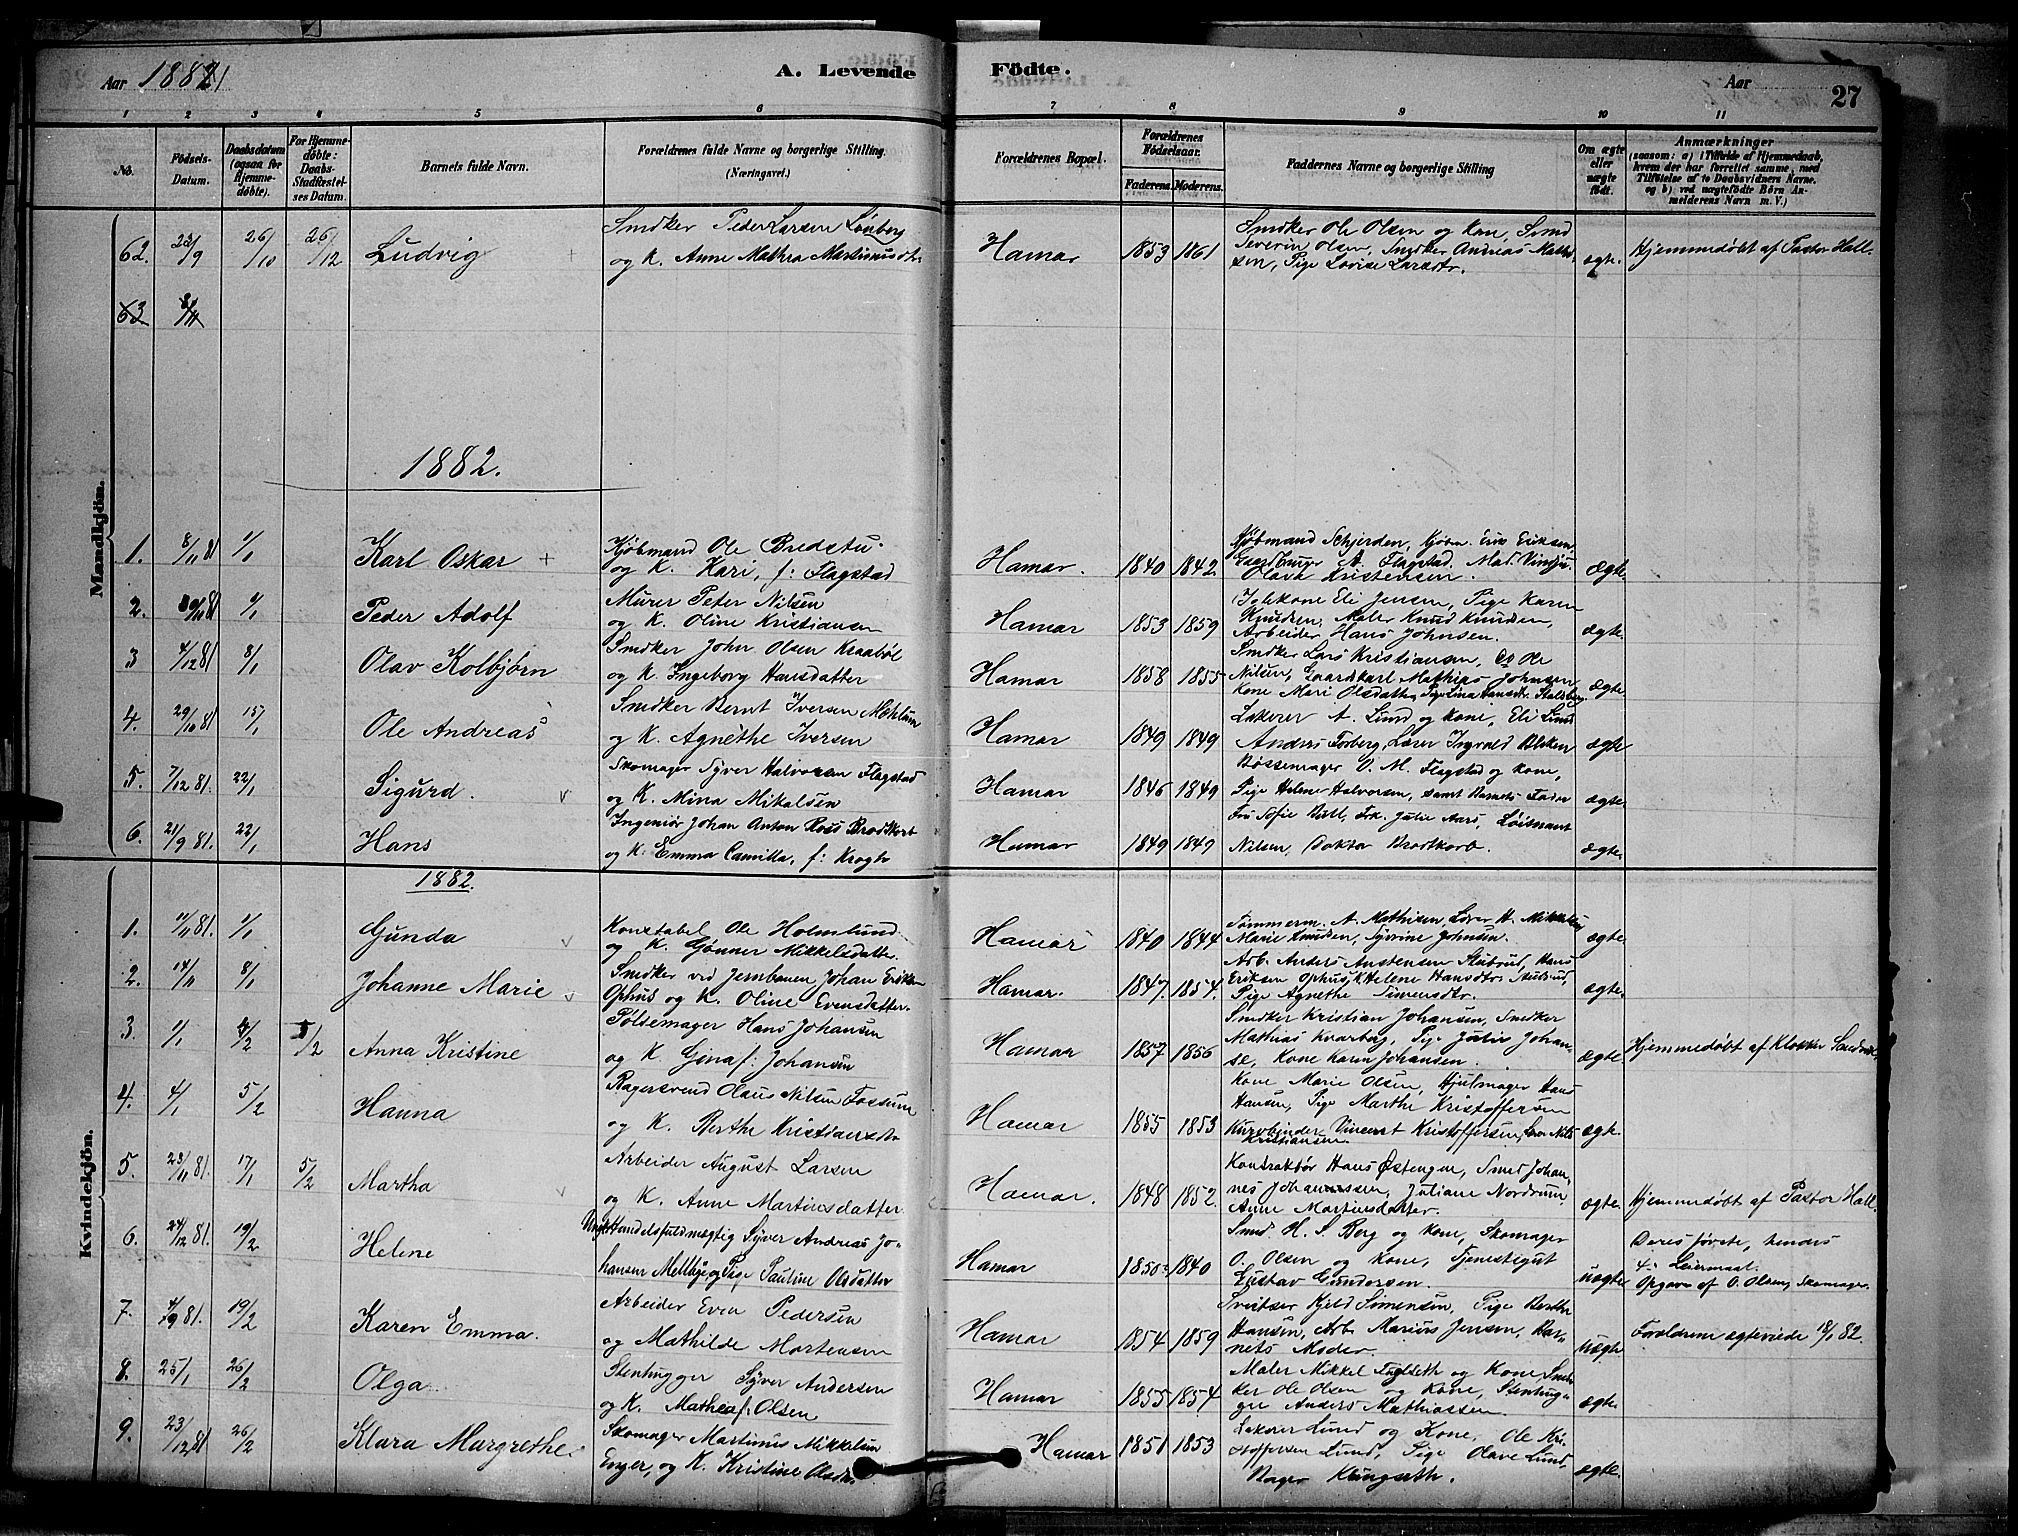 Aar 1881
A. Levende
Födte.
Aar
27
1 2 3 4 5 6 7 8 9 10 11
No.
Födsels-Datum.
Daabsdatum (ogsaa for Hjemmedöbte).
For Hjemmedöbte: Daabs-Stadfæstelses Datum.
Barnets fulde Navn.
Forældrenes fulde Navne og borgerlige Stilling. (Næringsvei.)
Forældrenes Bopæl.
Forældrenes Födselsaar.
Faderens. Moderens.
Faddernes Navne og borgerlige Stilling
Om ægte eller uægte födt.
Anmærkninger
(saasom: a) i Tilfælde af Hjemmedaab, hvem der har forrettet samme, med Tilföielse af to Daabsvidners Navne, og b) ved uægtefödte Börn Anmelderens Navn m. V.)
Mandkjön.
62. 22/9 26/10 26/12 Ludvig
Smdker Peder Larsen Lönberg
og K. Anne Mathea Martinusdt.
Hamar 1853 1861
Smdker Ole Olsen og Kone, Smed
Severin Olsen, Smdker Andreas Mathi-
sen, Pige Lovise Larsdtr.
ægte. Hjemmedøbt af Pastor Hall.
63
1882.
1. 8/11 81 1/1 Karl Oskar +
Kjøbmand Ole Bredstu
og K. Kari, f: Flagstad
Hamar. 1840 1842
Kjøbmand Schjerden, Kjøbm. Erik Eriksen,
Gaardbruger A. Flagstad, Mad. Vindju
Olava Kristensen.
ægte
2. 30/11 81 1/1 Peder Adolf
Murer Peter Nilsen
og K. Oline Kristiansen
Hamar 1853 1859
Kone Eli Jensen, Pige Karen
Knudsen, Maler Knud Knudsen,
Arbeider Hans Johnsen.
ægte.
3 4/12 81 8/1 Olav Kolbjørn
Smdker John Olsen Kraabøl
og K. Ingeborg Hansdatter
Hamar 1858 1855
Smdker Lars Kristiansen, do Ole
Nilsen, Gaardkarl Mathias Johnsen
Kone Mari Olsdatter, Pige Lina Hansdtr. Stalsberg
ægte
4. 29/10 81 15/1 Ole Andreas
Smdker Bernt Iversen Mæhlum
og K. Agnethe Iversen
Hamar 1849 1849
Lakerer A. Lund og Kone, Eli Lund
Anders Forberg, Lærer Ingvald Bleken
ægte
5. 7/12 81. 22/1 Sigurd.
Skomager Syver Halvorsen Flagstad
og K. Mina Mikalsen
Hamar 1846 1849
Bøssemager O. M. Flagstad og Kone,
Pige Helene Halvorsen, samt Barnets Fader
ægte
6. 21/9 81. 22/1 Hans
Ingeniör Johan Anton Ross Brodtkorb
og K. Emma Camilla, f: Krogh
Hamar 1849 1849
Fru Sofie Bull, Frk. Julie Aars, Löitnant
Nilsen, Doktor Brodtkorb.
ægte.
Kvindekjön.
1882.
1. 11/11 81. 1/1 Gunda
Konstabel Ole Holmlund
og K. Gunner Mikkelsdatter
Hamar 1840 1844
Tømmerm. A. Mathisen, Lærer H. Mikkelsen
Marie Knudsen, Syverine Johnsen.
ægte.
2. 14/11 8/1 Johanne Marie
Smdker ved Jernbanen Johan Eriksen
Ophus og K. Oline Evensdatter
Hamar. 1847. 1854.
Arb. Anders Austensen Stubrud, Hans
Eriksen Ophus, K. Helene Hansdtr. Stubrud,
Pige Agnethe Simensdtr.
ægte.
3. 1/1 4/2 5/2 Anna Kristine
Pölsemager Hans Johansen
og K. Gina f: Johansen
Hamar 1857 1856
Smdker Kristian Johansen, Smdker
Mathias Kvarberg, Pige Julie Johan-
se, Kone Karen Johansen.
ægte Hjemmedøbt af Klokker Sandvik.
4. 4/1 5/2 Hanna
Bagersvend Olaus Nilsen Fossum
og K. Berthe Kristiansdtr
Hamar 1855 1853
Kone Marie Olsen, Hjulmager Hans
Hansen, Pige Marthe Kristoffersen
Kurvbinder Vincent Kristoffersen, Nils
Kristiansen.
ægte.
5. 23/11 81. 17/1 5/2 Martha
Arbeider August Larsen
og K. Anne Martinsdatter
Hamar. 1848 1852.
Kontraktør Hans Østengen, Smed Johan-
nes Johannessen, Juliane Nordrum
Anne Martinsdatter.
ægte. Hjemmedøbt af Pastor Hall.
6. 24/12 81. 19/2 Helene
Ungk. Handelsfuldmægtig Syver Andreas Jo-
hansen Mellbye og Pige Pauline Olsdatter
Hamar 1850 1840
Smed. H. S. Berg og Kone, Skomager
O. Olsen og Kone, Tjenestegut
Gustav Gundersen.
uægte
Deres første, hendes
4. Leiermaal.
Opgave af O. Olsen, Skomager.
7. 4/9 81. 19/2 Karen Emma.
Arbeider Even Pedersen
og Mathilde Mortensen
Hamar 1854 1859
Sveitser Kjeld Simensen, Pige Berthe
Hansen, Arb. Marius Jensen, Bar-
nets Moder.
uægte Forældrene ægteviede 18/1 82.
8. 25/1 26/2 Olga
Stenhugger Syver Andersen
og K. Mathea f: Olsen
Hamar 1855 1854
Maler Mikkel Engseth og Kone, Smd-
ker Ole Olsen og Kone, Stenhug-
ger Anders Mathiassen.
ægte
9. 23/12 81 26/2 Klara Margrethe.
Skomager Martinus Mikkelsen
Enger, og K. Kristine Olsdtr.
Hamar 1851 1853
Lakerer Lund og Kone, Ole Kri-
stoffersen Lund, Pige Olave Lund,
Bager Klungseth.
ægte.